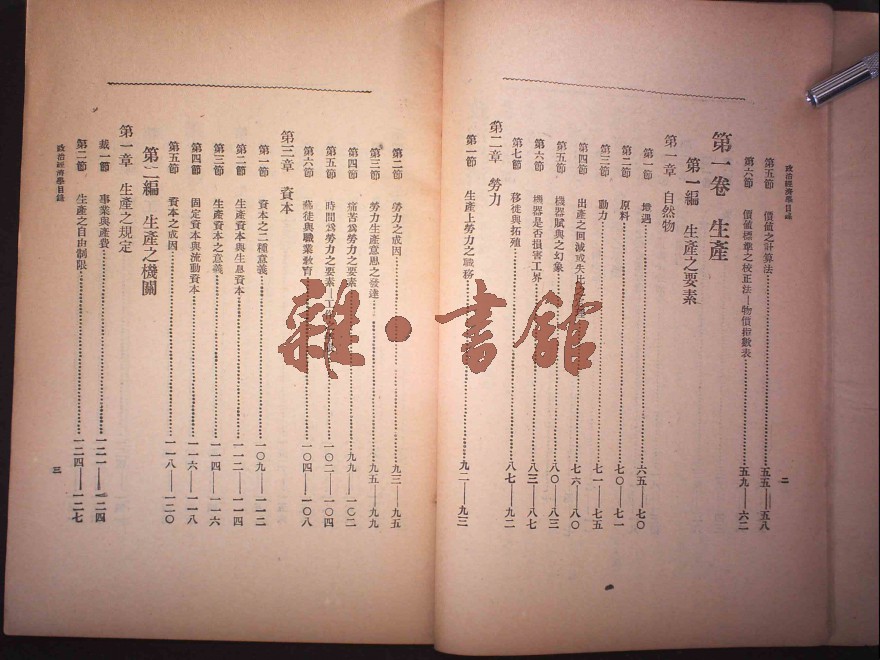 政治經濟學目錄
二
第五節 價値之計算法 五五—五八
第六節 價値標準之校正法—物價指數表 五九—六二
第一卷 生產
第一編 生產之要素
第一章 自然物
第一節 境遇 六五—七〇
第二節 原料 七〇—七一
第三節 動力 七一—七五
第四節 出產之回減或失比 七六—八〇
第五節 機器賦與之幻象 八〇—八三
第六節 機器是否損害工界 八三—八七
第七節 移徙與拓殖 八七—九二
第二章 勞力
第一節 生產上勞力之職務 九二—九三
第二節 勞力之成因 九三—九五
第三節 勞力生產意思之發達 九五—九九
第四節 痛苦爲勞力之要素 九九—一〇二
第五節 時間爲勞力之要素—工 一〇二—一〇四
第六節 藝徒與職業敎育 一〇四—一〇八
第三章 資本
第一節 資本之二種意義 一〇九—一一二
第二節 生產資本與生息資本 一一二—一一四
第三節 生產資本之意義 一一四—一一六
第四節 固定資本與流動資本 一一六—一一八
第五節 資本之成因 一一八—一二〇
第二編 生產之機關
第一章 生產之規定
第一節 事業與產費 一二一—一二四
第二節 生產之自由制限 一二四—一二七
政治經濟學目錄
三
雜·書館